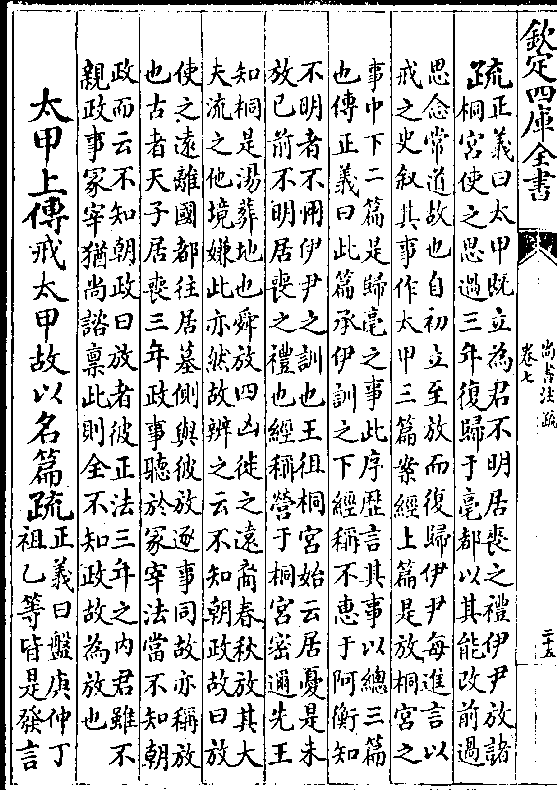 欽定四庫全書
尚書注疏
卷七
二十五
疏正義曰太甲既立為君不明居喪之禮伊尹放諸
桐宮使之思過三年復歸于亳都以其能改前過
思念常道故也自初立至放而復歸伊尹每進言以
戒之史叙其事作太甲三篇案經上篇是放桐宮之
事中下二篇是歸亳之事此序歴言其事以總三篇
也傳正義曰此篇承伊訓之下經稱不惠于阿衡知
不明者不用伊尹之訓也王徂桐宮始云居憂是未
放已前不明居喪之禮也經稱營于桐宮密邇先王
知桐是湯葬地也舜放四凶徙之遠裔春秋放其大
夫流之他境嫌此亦然故辨之云不知朝政故曰放
使之遠離國都往居墓側與彼放逐事同故亦稱放
也古者天子居喪三年政事聽於冢宰法當不知朝
政而云不知朝政曰放者彼正法三年之内君雖不
親政事冢宰猶尚諮稟此則全不知政故為放也
太甲上傳戒太甲故以名篇疏正義曰盤庚仲丁
祖乙等皆是發言